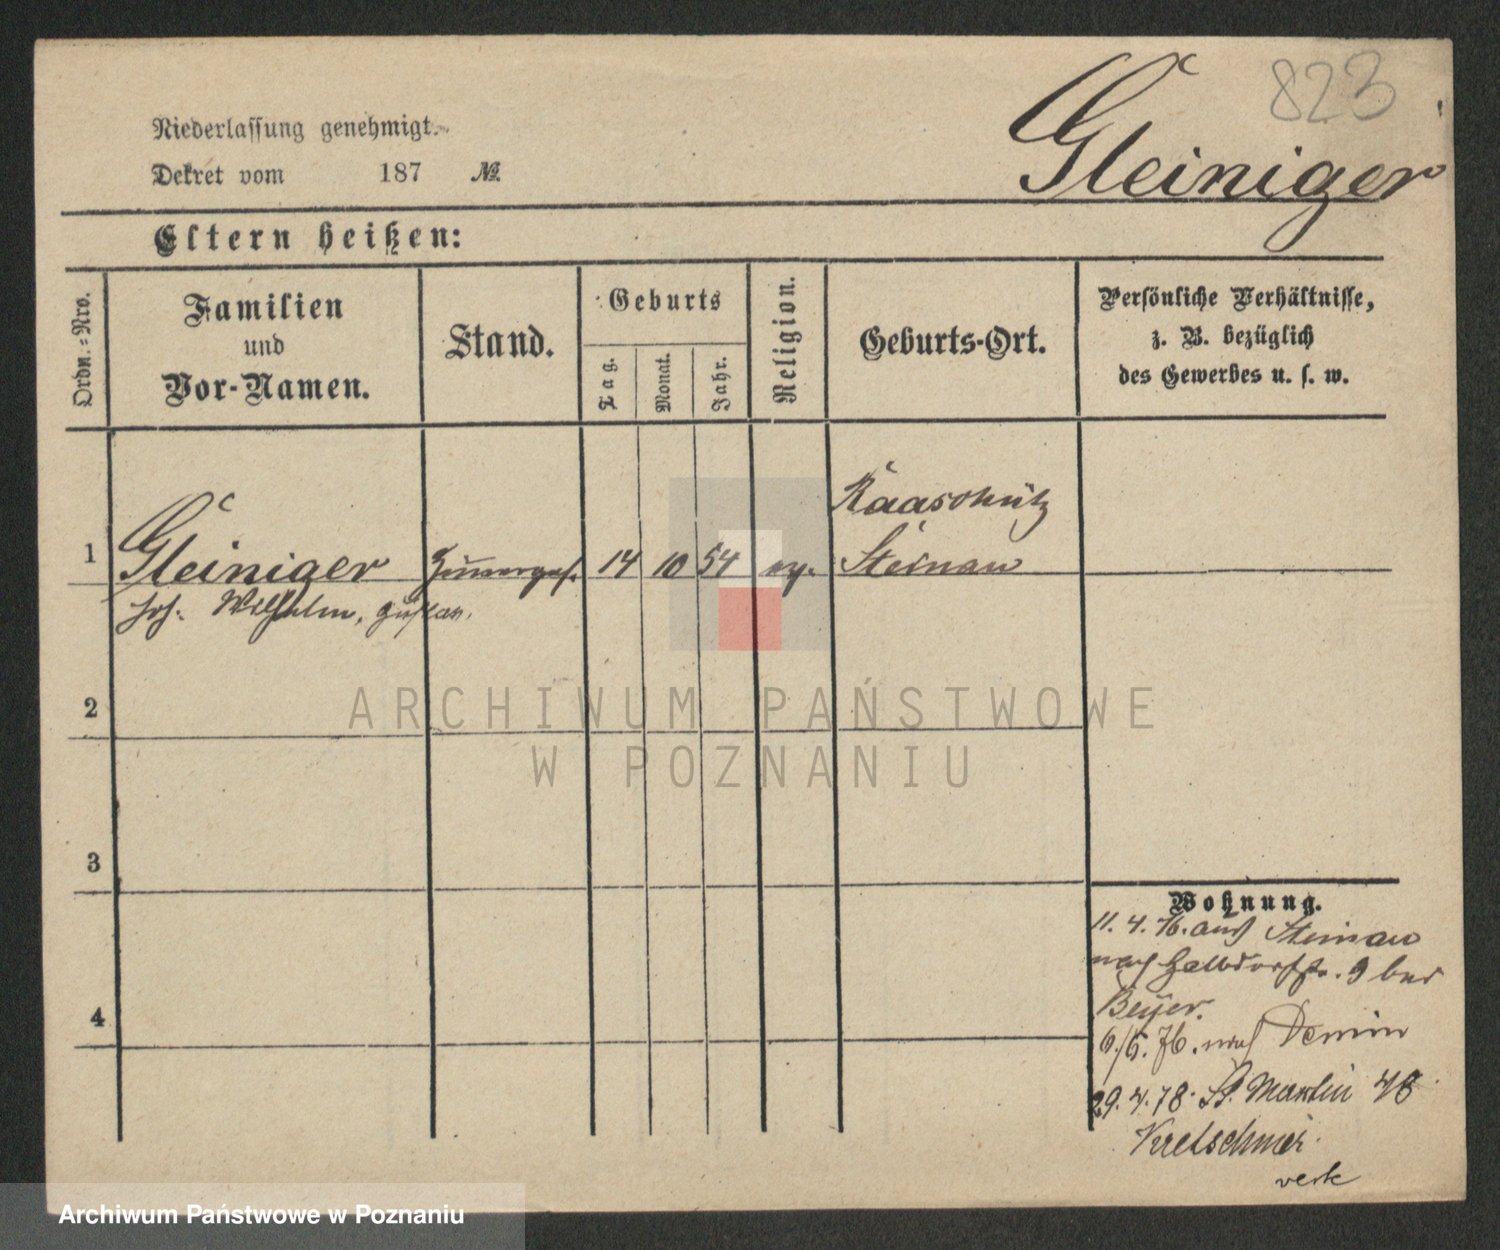 823
Gleiniger
Niederlassung genehmigt.
Dekret vom 187 №
Eltern heißen:
Ordn.-Nro.
Familien
und
Vor-Namen.
Stand.
Geburts
Tag.
Monat.
Jahr.
Religion.
Geburts-Ort.
Persönliche Verhältnisse,
z. B. bezüglich
des Gewerbes u. s. w.
Raaschütz
1 Gleiniger 14 10 54 Steinau
Joh. Wilhelm, Gustav.
2
3
4
Wohnung.
11. 4. 76. aus Steinau
nach Halbdorfstr. 9 bei
Beyer.
6./6. 76. nach
29. 4. 78. St. Martin 48
Kretschmer
ARCHIWUM PAŃSTWOWE
W POZNANIU
Archiwum Państwowe w Poznaniu